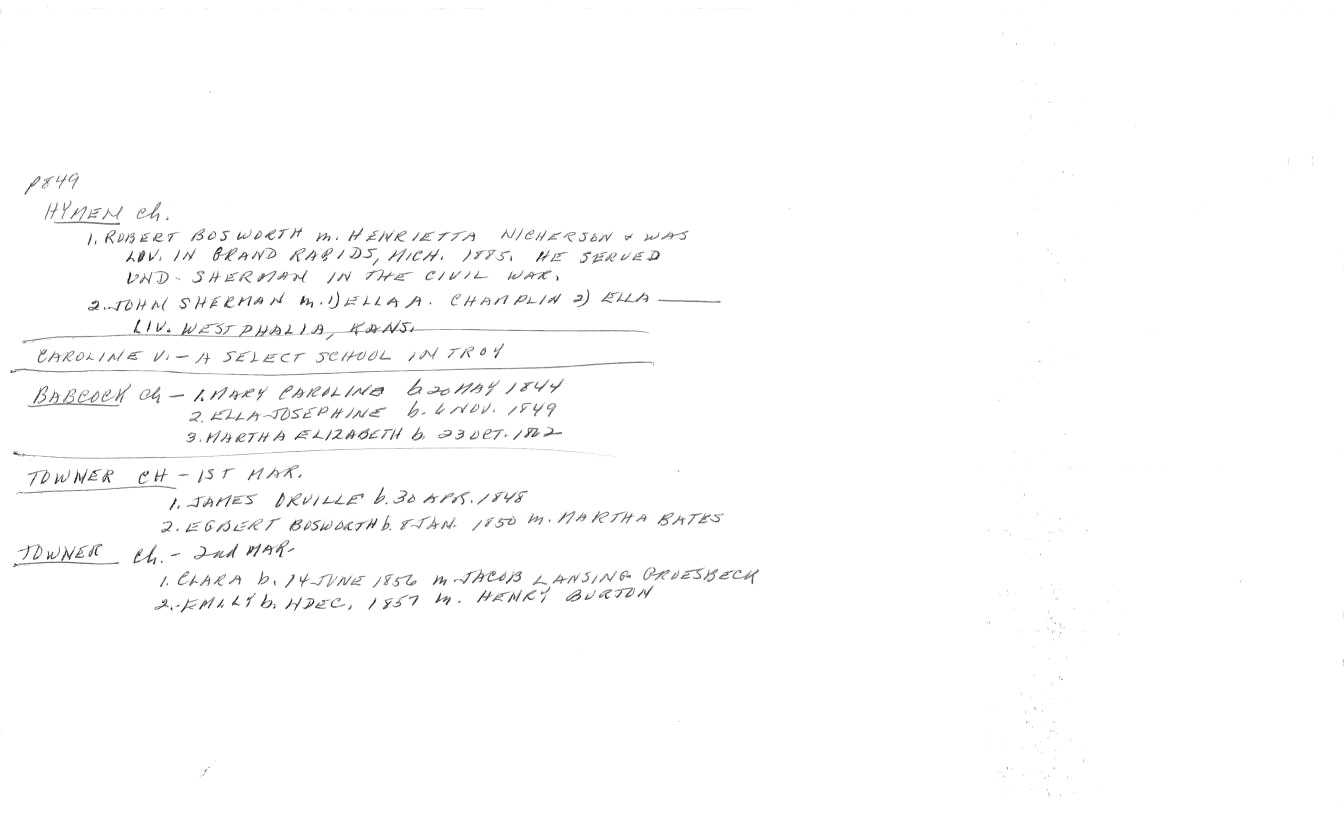 P849
HYMEN ch.
1. ROBERT BOSWORTH m. HENRIETTA NICHERSON & WAS
LIV. IN GRAND RAPIDS, MICH. 1885. HE SERVED
UND. SHERMAN IN THE CIVIL WAR.
2. JOHN SHERMAN m. 1) ELLA A. CHAMPLIN 2) ELLA
LIV. WESTPHALIA, KANS.
CAROLINE V. - A SELECT SCHOOL IN TROY
BABCOCK ch - 1. MARY CAROLINE b. 20 MAY 1844
2. ELLA JOSEPHINE b. 6 NOV. 1849
3. MARTHA ELIZABETH b. 23 OCT. 1862
TOWNER CH - 1ST MAR.
1. JAMES ORVILLE b. 30 APR. 1848
2. EGBERT BOSWORTH b. 8 JAN. 1850 m. MARTHA BATES
TOWNER ch. - 2nd MAR.
1. CLARA b. 14 JUNE 1856 m. JACOB LANSING GROESBECK
2. EMILY b. 4 DEC. 1857 m. HENRY BURTON